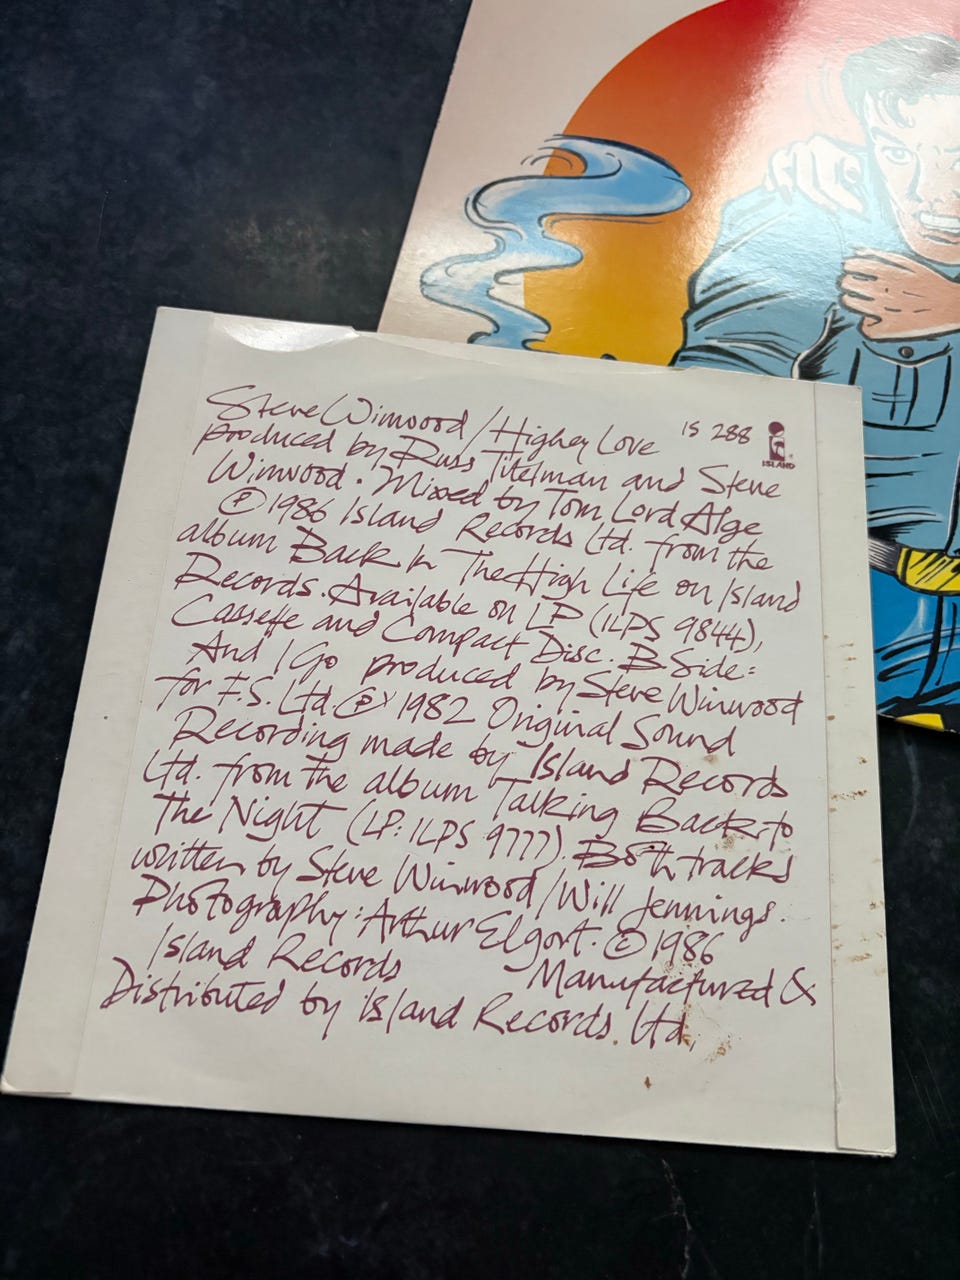 Steve Winwood / Higher Love IS 288
ISLAND
produced by Russ Titelman and Steve
Winwood. Mixed by Tom Lord Alge
Ⓟ 1986 Island Records Ltd. from the
album Back In The High Life on Island
Records. Available on LP (ILPS 9844),
Cassette and Compact Disc. B Side:
And I Go produced by Steve Winwood
for F.S. Ltd. Ⓟ 1982 Original Sound
Recording made by Island Records
Ltd. from the album Talking Back to
The Night (LP: ILPS 9777). Both tracks
written by Steve Winwood / Will Jennings.
Photography: Arthur Elgort. © 1986
Island Records Manufactured &
Distributed by Island Records. Ltd.